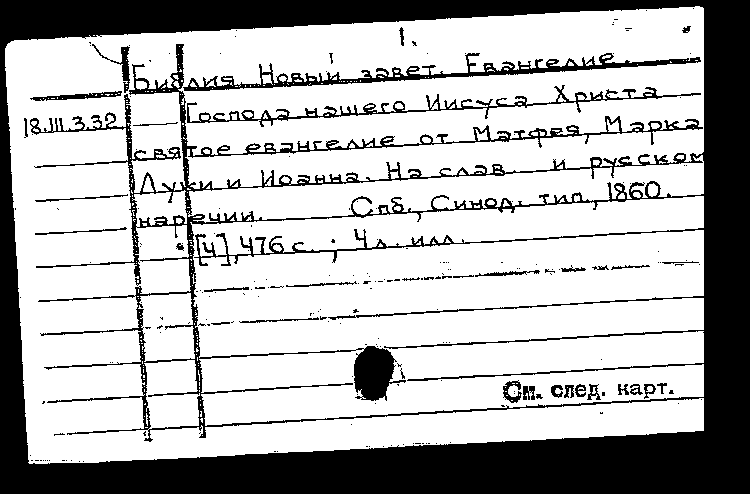 1.
Библия. Новый завет. Евангелие.
18.III.3.32 Господа нашего Иисуса Христа
святое евангелие от Матфея, Марка
Луки и Иоанна. На слав. и русском
наречии. Спб., Синод. тип., 1860.
[4], 476 с. ; 4 л. илл.
См. след. карт.